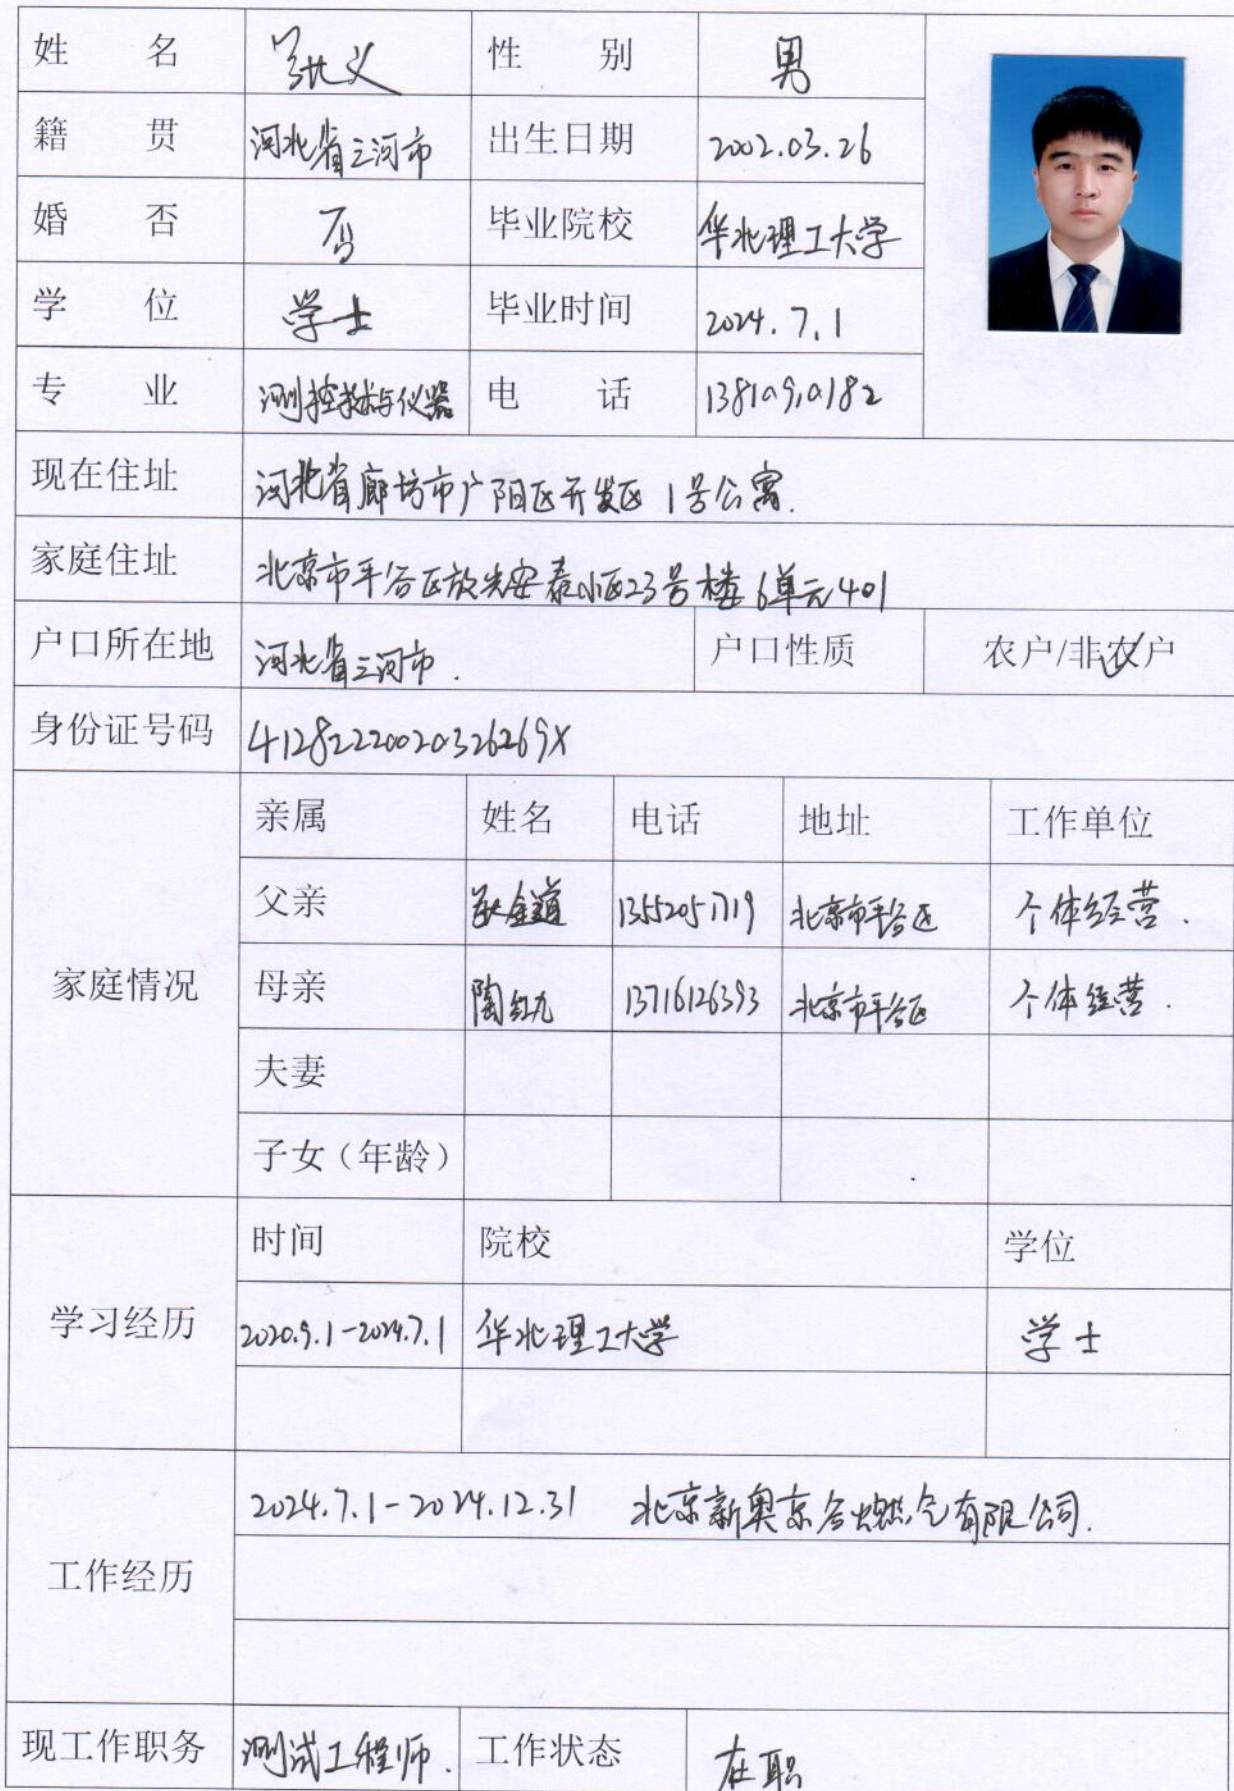 姓 名 张义 性 别 男
籍 贯 河北省三河市 出生日期 2002.03.26
婚 否 否 毕业院校 华北理工大学
学 位 学士 毕业时间 2024.7.1
专 业 测控技术与仪器 电 话 13810910182
现在住址 河北省廊坊市广阳区开发区1号公寓.
家庭住址 北京市平谷区放光安泰小区23号楼6单元401
户口所在地 河北省三河市. 户口性质 农户/非农户
身份证号码 41282220020326269X
亲属 姓名 电话 地址 工作单位
父亲 13552051719 北京市平谷区 个体经营.
家庭情况 母亲 陶红九 13716126393 北京市平谷区 个体经营.
夫妻
子女（年龄）
时间 院校 学位
学习经历 2020.9.1-2024.7.1 华北理工大学 学士
2024.7.1-2024.12.31 北京新奥京谷燃气有限公司.
工作经历
现工作职务 测试工程师. 工作状态 在职